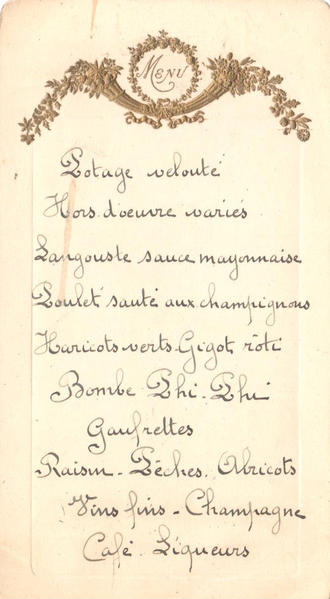 Menu
Potage velouté
Hors d'oeuvre variés
Langouste sauce mayonnaise
Poulet sauté aux champignons
Haricots verts Gigot rôti
Bombe Phi-Phi
Gaufrettes
Raisin - Pêches. Abricots
Vins fins - Champagne
Café. Liqueurs